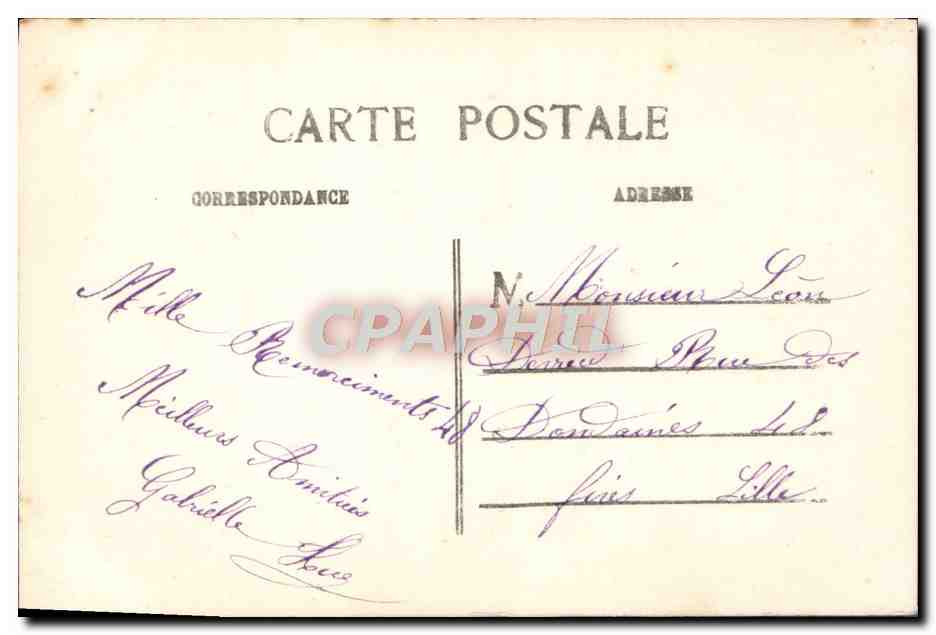 CARTE POSTALE
CORRESPONDANCE
ADRESSE
Mille
Remerciments 48
Meilleurs Amitiés
Gabrielle
N. Monsieur Léon
Rue des
Dondaines 48
fives Lille
CPAPHIL